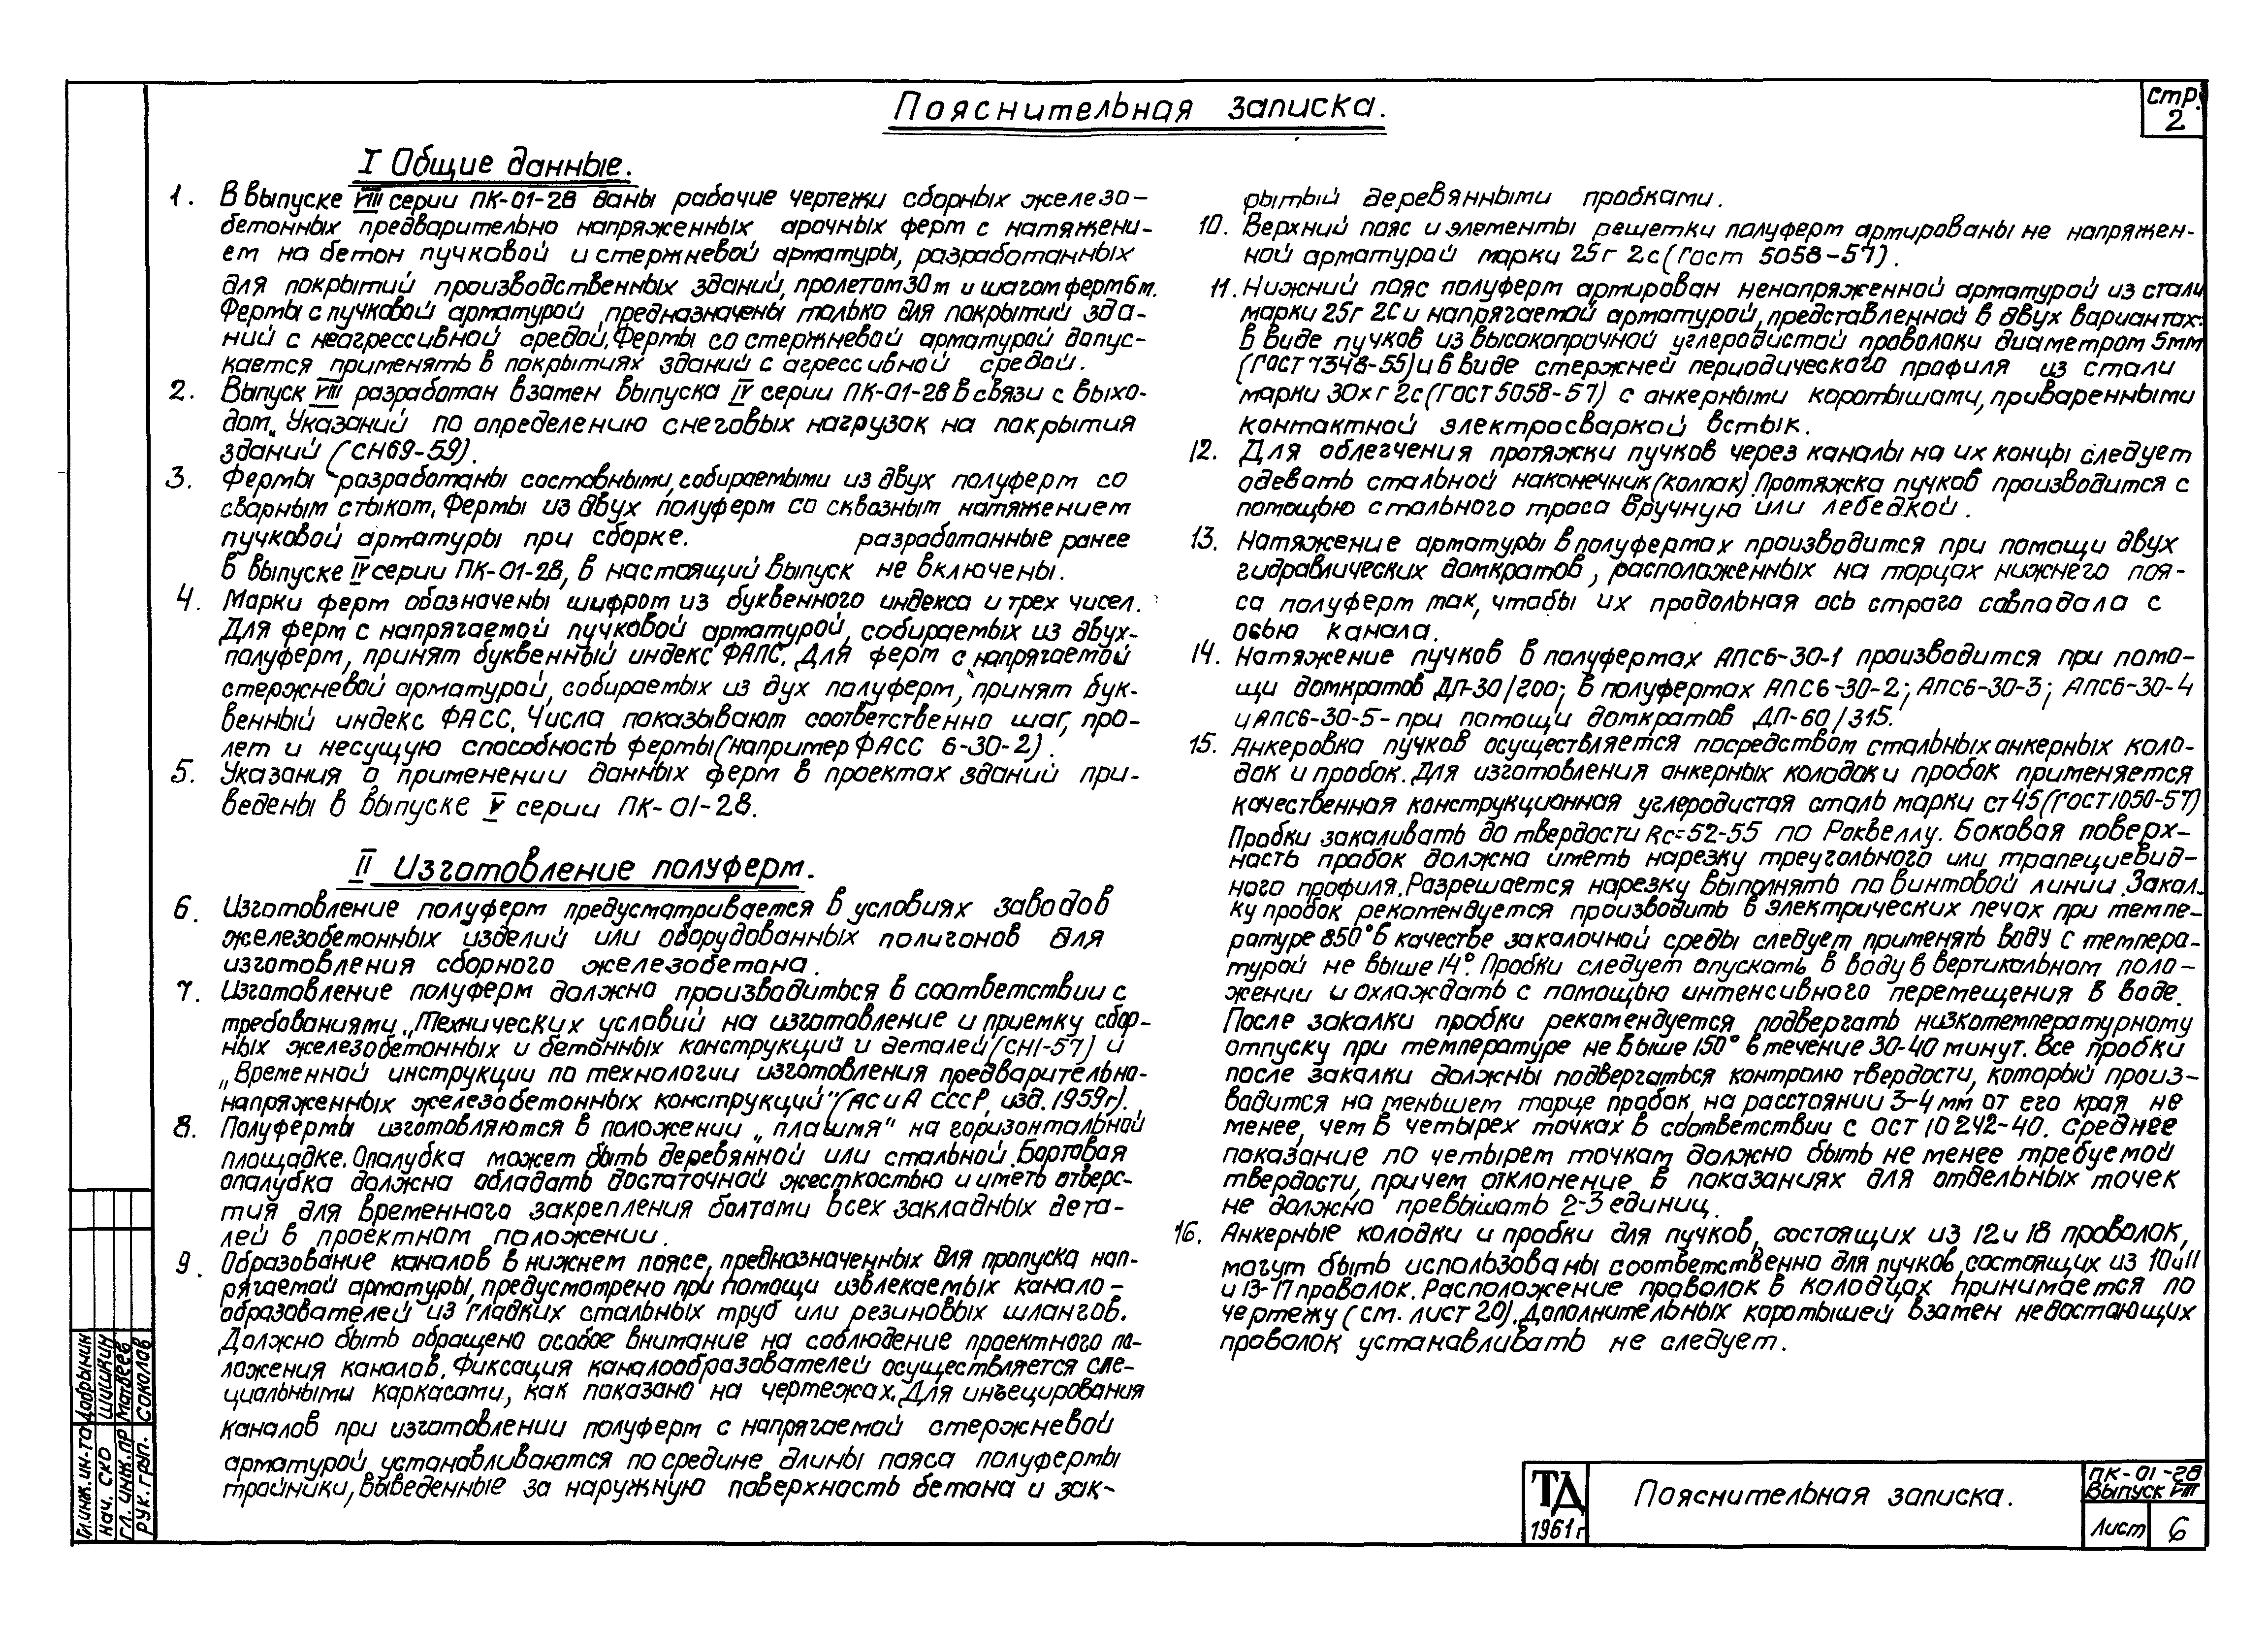 Пояснительная записка.
стр.
2
I Общие данные.
1. В выпуске VIII серии ПК-01-28 даны рабочие чертежи сборных железо-
бетонных предварительно напряженных арочных ферм с натяжени-
ем на бетон пучковой и стержневой арматуры, разработанных
для покрытий производственных зданий, пролетом 30м и шагом ферм 6м.
Фермы с пучковой арматурой предназначены только для покрытий зда-
ний с неагрессивной средой. Фермы со стержневой арматурой допус-
кается применять в покрытиях зданий с агрессивной средой.
2. Выпуск VIII разработан взамен выпуска IV серии ПК-01-28 в связи с выхо-
дом „Указаний по определению снеговых нагрузок на покрытия
зданий (СН69-59).
3. Фермы разработаны составными, собираемыми из двух полуферм со
сварным стыком. Фермы из двух полуферм со сквозным натяжением
пучковой арматуры при сборке. разработанные ранее
в выпуске IV серии ПК-01-28, в настоящий выпуск не включены.
4. Марки ферм обозначены шифром из буквенного индекса и трех чисел.
Для ферм с напрягаемой пучковой арматурой, собираемых из двух-
полуферм, принят буквенный индекс ФАПС. Для ферм с напрягаемой
стержневой арматурой, собираемых из дух полуферм, принят бук-
венный индекс ФАСС. Числа показывают соответственно шаг, про-
лет и несущую способность фермы (например ФАСС 6-30-2).
5. Указания о применении данных ферм в проектах зданий при-
ведены в выпуске V серии ПК-01-28.
II Изготовление полуферм.
6. Изготовление полуферм предусматривается в условиях заводов
железобетонных изделий или оборудованных полигонов для
изготовления сборного железобетона.
7. Изготовление полуферм должно производиться в соответствии с
требованиями „Технических условий на изготовление и приемку сбор-
ных железобетонных и бетонных конструкций и деталей (СН1-57) и
„Временной инструкции по технологии изготовления предварительно-
напряженных железобетонных конструкций" (АС и А СССР, изд. 1959г).
8. Полуфермы изготовляются в положении „плашмя" на горизонтальной
площадке. Опалубка может быть деревянной или стальной. Бортовая
опалубка должна обладать достаточной жесткостью и иметь отверс-
тия для временного закрепления болтами всех закладных дета-
лей в проектном положении.
9. Образование каналов в нижнем поясе, предназначенных для пропуска нап-
рягаемой арматуры, предусмотрено при помощи извлекаемых канало-
образователей из гладких стальных труб или резиновых шлангов.
Должно быть обращено особое внимание на соблюдение проектного по-
ложения каналов. Фиксация каналообразователей осуществляется спе-
циальными каркасами, как показано на чертежах. Для инъецирования
каналов при изготовлении полуферм с напрягаемой стержневой
арматурой устанавливаются по средине длины пояса полуфермы
тройники, выведенные за наружную поверхность бетона и зак-
рытый деревянными пробками.
10. Верхний пояс и элементы решетки полуферм армированы не напряжен-
ной арматурой марки 25г 2с (Гост 5058-57).
11. Нижний пояс полуферм армирован ненапряженной арматурой из стали
марки 25г 2С и напрягаемой арматурой, представленной в двух вариантах:
В виде пучков из высокопрочной углеродистой проволоки диаметром 5мм
(Гост 7348-55) и в виде стержней периодического профиля из стали
марки 30хг 2с (Гост 5058-57) с анкерными коротышами, приваренными
контактной электросваркой встык.
12. Для облегчения протяжки пучков через каналы на их концы следует
одевать стальной наконечник (колпак). Протяжка пучков производится с
помощью стального троса вручную или лебедкой.
13. Натяжение арматуры в полуфермах производится при помощи двух
гидравлических домкратов, расположенных на торцах нижнего поя-
са полуферм так, чтобы их продольная ось строго совпадала с
осью канала.
14. Натяжение пучков в полуфермах АПС6-30-1 производится при помо-
щи домкратов ДП-30/200; в полуфермах АПС6-30-2; АПС6-30-3; АПС6-30-4
и АПС6-30-5- при помощи домкратов ДП-60/315.
15. Анкеровка пучков осуществляется посредством стальных анкерных коло-
док и пробок. Для изготовления анкерных колодок и пробок применяется
качественная конструкционная углеродистая сталь марки ст45 (Гост1050-57)
Пробки закаливать до твердости Rс=52-55 по Роквеллу. Боковая поверх-
ность пробок должна иметь нарезку треугольного или трапециевид-
ного профиля. Разрешается нарезку выполнять по винтовой линии. Закал-
ку пробок рекомендуется производить в электрических печах при темпе-
ратуре 850° В качестве закалочной среды следует применять воду с темпера-
турой не выше 14°. Пробки следует опускать в воду в вертикальном поло-
жении и охлаждать с помощью интенсивного перемещения в воде.
После закалки пробки рекомендуется подвергать низкотемпературному
отпуску при температуре не выше 150° в течение 30-40 минут. Все пробки
после закалки должны подвергаться контролю твердости, который произ-
водится на меньшем торце пробок на расстоянии 3-4 мм от его края не
менее, чем в четырех точках в соответствии с ОСТ 10242-40. Среднее
показание по четырем точкам должно быть не менее требуемой
твердости, причем отклонение в показаниях для отдельных точек
не должно превышать 2-3 единиц.
16. Анкерные колодки и пробки для пучков, состоящих из 12 и 18 проволок,
могут быть использованы соответственно для пучков, состоящих из 10 и 11
и 13-17 проволок. Расположение проволок в колодцах принимается по
чертежу (см. лист 20). Дополнительных коротышей взамен недостающих
проволок устанавливать не следует.
Гл.инж.ин-та Добрынин
нач. СКО Шишкин
Гл. инж.пр Матвеев
Рук. груп. Соколов
ТД
1961г
Пояснительная записка.
ПК-01-28
Выпуск VIII
Лист 6